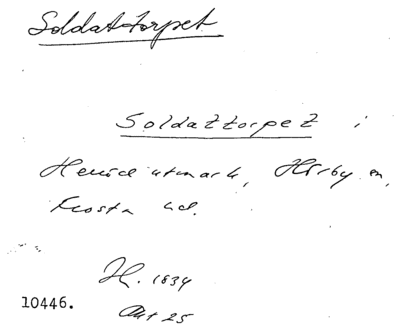 Soldattorpet
Soldattorpet i
Hörby sn,
Frosta hd.
H. 1834
Akt 25
10446.